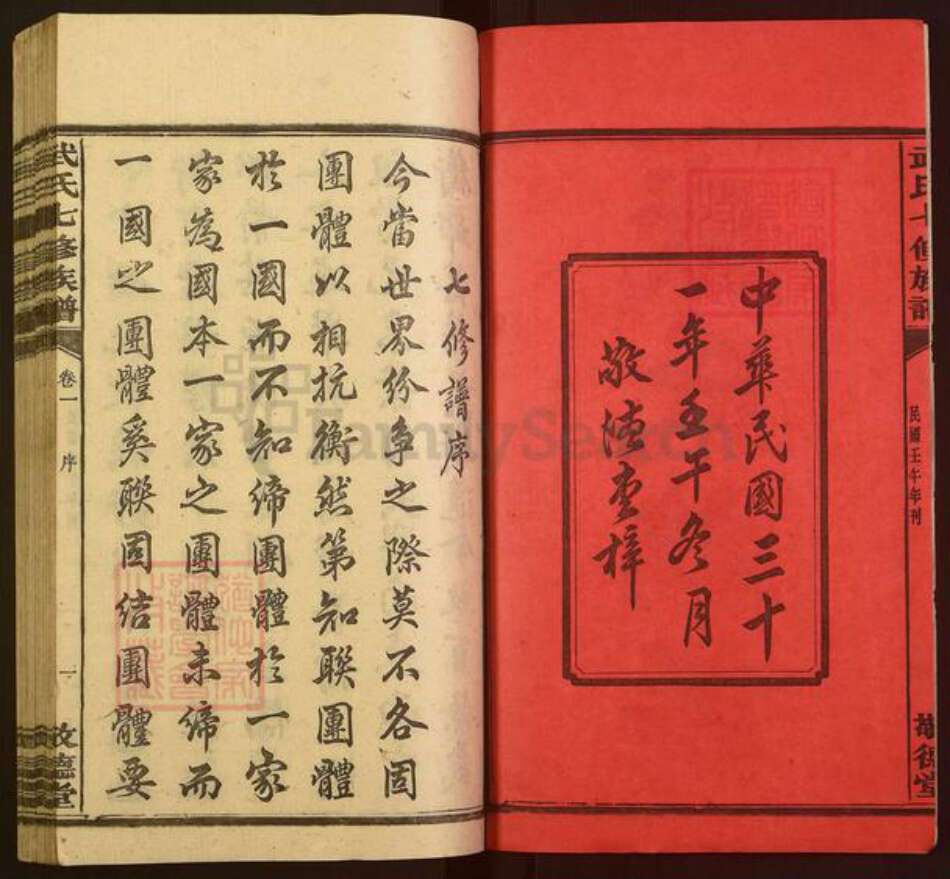 中華民國三十
一年壬午冬月
敬德堂梓
武氏七修族譜
民國壬午年刊
敬德堂
七修譜序
今當世界紛争之際莫不各固
團體以相抗衡然第知聯團體
於一國而不知締團體於一家
家為國本一家之團體未締而
一國之團體奚聯固結團體要
武氏七修族譜
卷一
序
一
敬德堂
FamilySearch